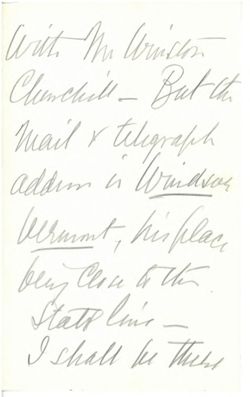 With Mr Winston
Churchill — But the
mail & telegraph
address is Windsor
Vermont, his place
being close to the
State line —
I shall be there